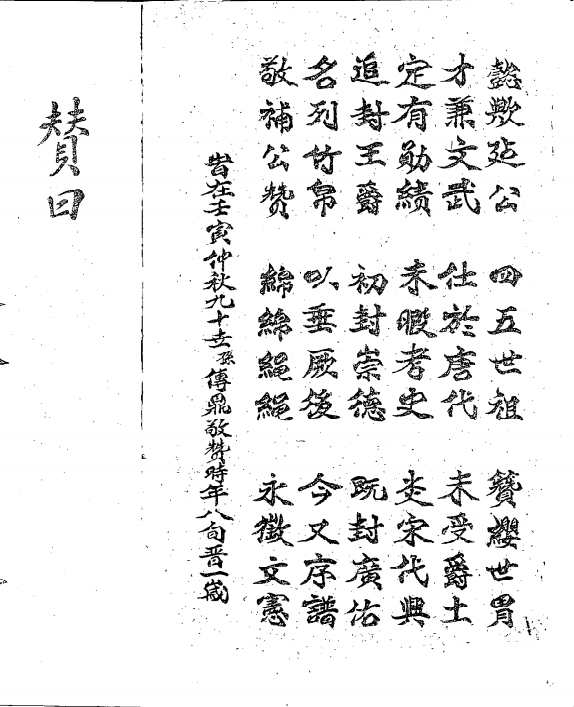 懿歟延公 四五世祖 簪纓世胃
才兼文武 仕於唐代 未受爵土
定有勛績 未暇考史 炎宋代興
追封王爵 初封崇德 既封廣佑
名列竹帛 以垂厥後 今又序譜
敬補公贊 綿綿繩繩 永徵文憲
旹在壬寅仲秋九十世孫傳鼎敬贊時年八旬晋一歲
贊曰